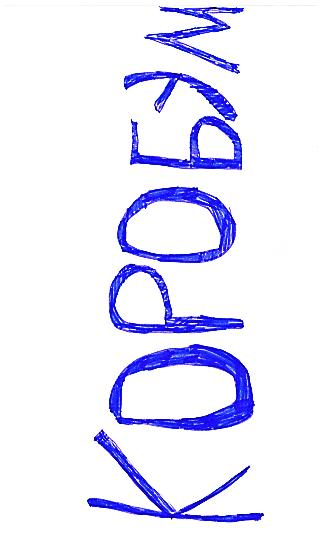 КОРОБУМ